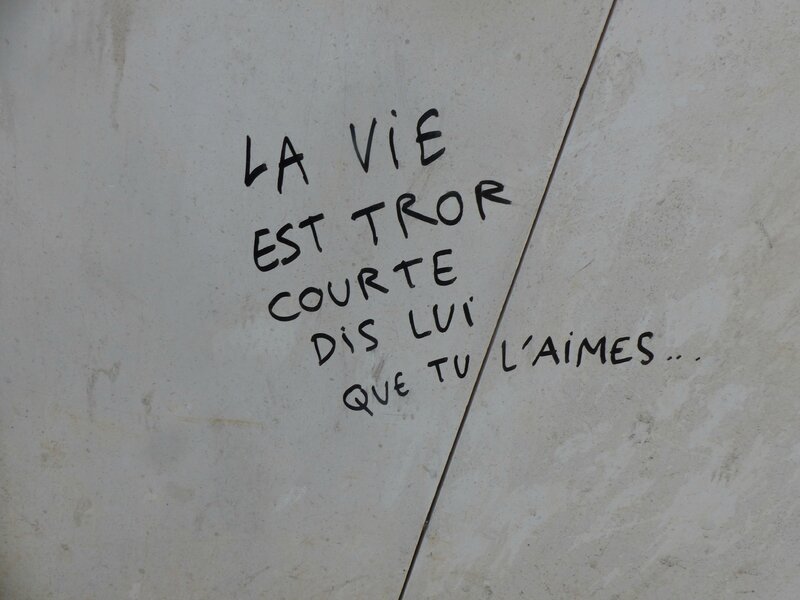 LA ViE
EST TROR
COURTE
DiS LUi
QUE TU L'AiMES...